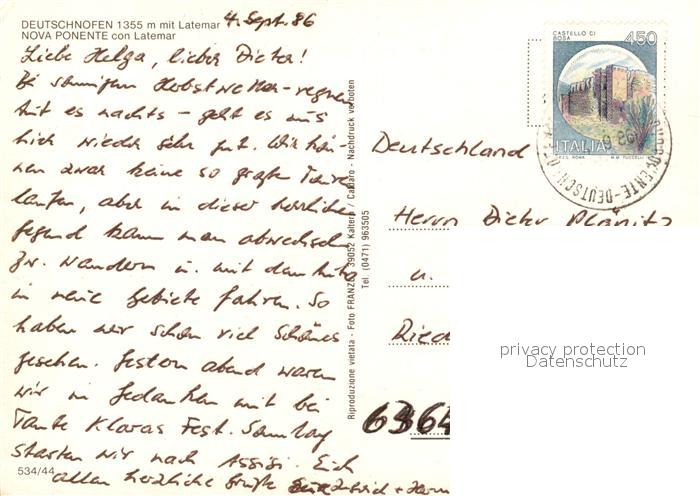 DEUTSCHNOFEN 1355 m mit Latemar
NOVA PONENTE con Latemar
4. Sept. 86
Liebe Helga, lieber Dieter!
Bei sonnigem Herbstwetter - regnen
tut es nachts - geht es uns
hier wieder sehr gut. Wir kön-
nen zwar keine so große Touren
laufen, aber in dieser herrlichen
Gegend kann man abwechseln
zw. wandern u. mit dem Auto
in neue Gebiete fahren. So
haben wir schon viel Schönes
gesehen. Gestern abend waren
wir in Gedanken mit bei
Tante Klaras Fest. Samstag
starten wir nach Assisi. Euch
allen herzliche Grüße
534/44
Riproduzione vietata - Foto FRANZL, 39052 Kaltern / Caldaro - Nachdruck verboten
Tel. (0471) 963505
CASTELLO DI
ROSA
450
ITALIA
I.P.Z.S. ROMA
M.M. TUCCELLI
PONENTE-DEUTSCH
Deutschland
Herrn Dieter
u.
Ried
privacy protection
Datenschutz